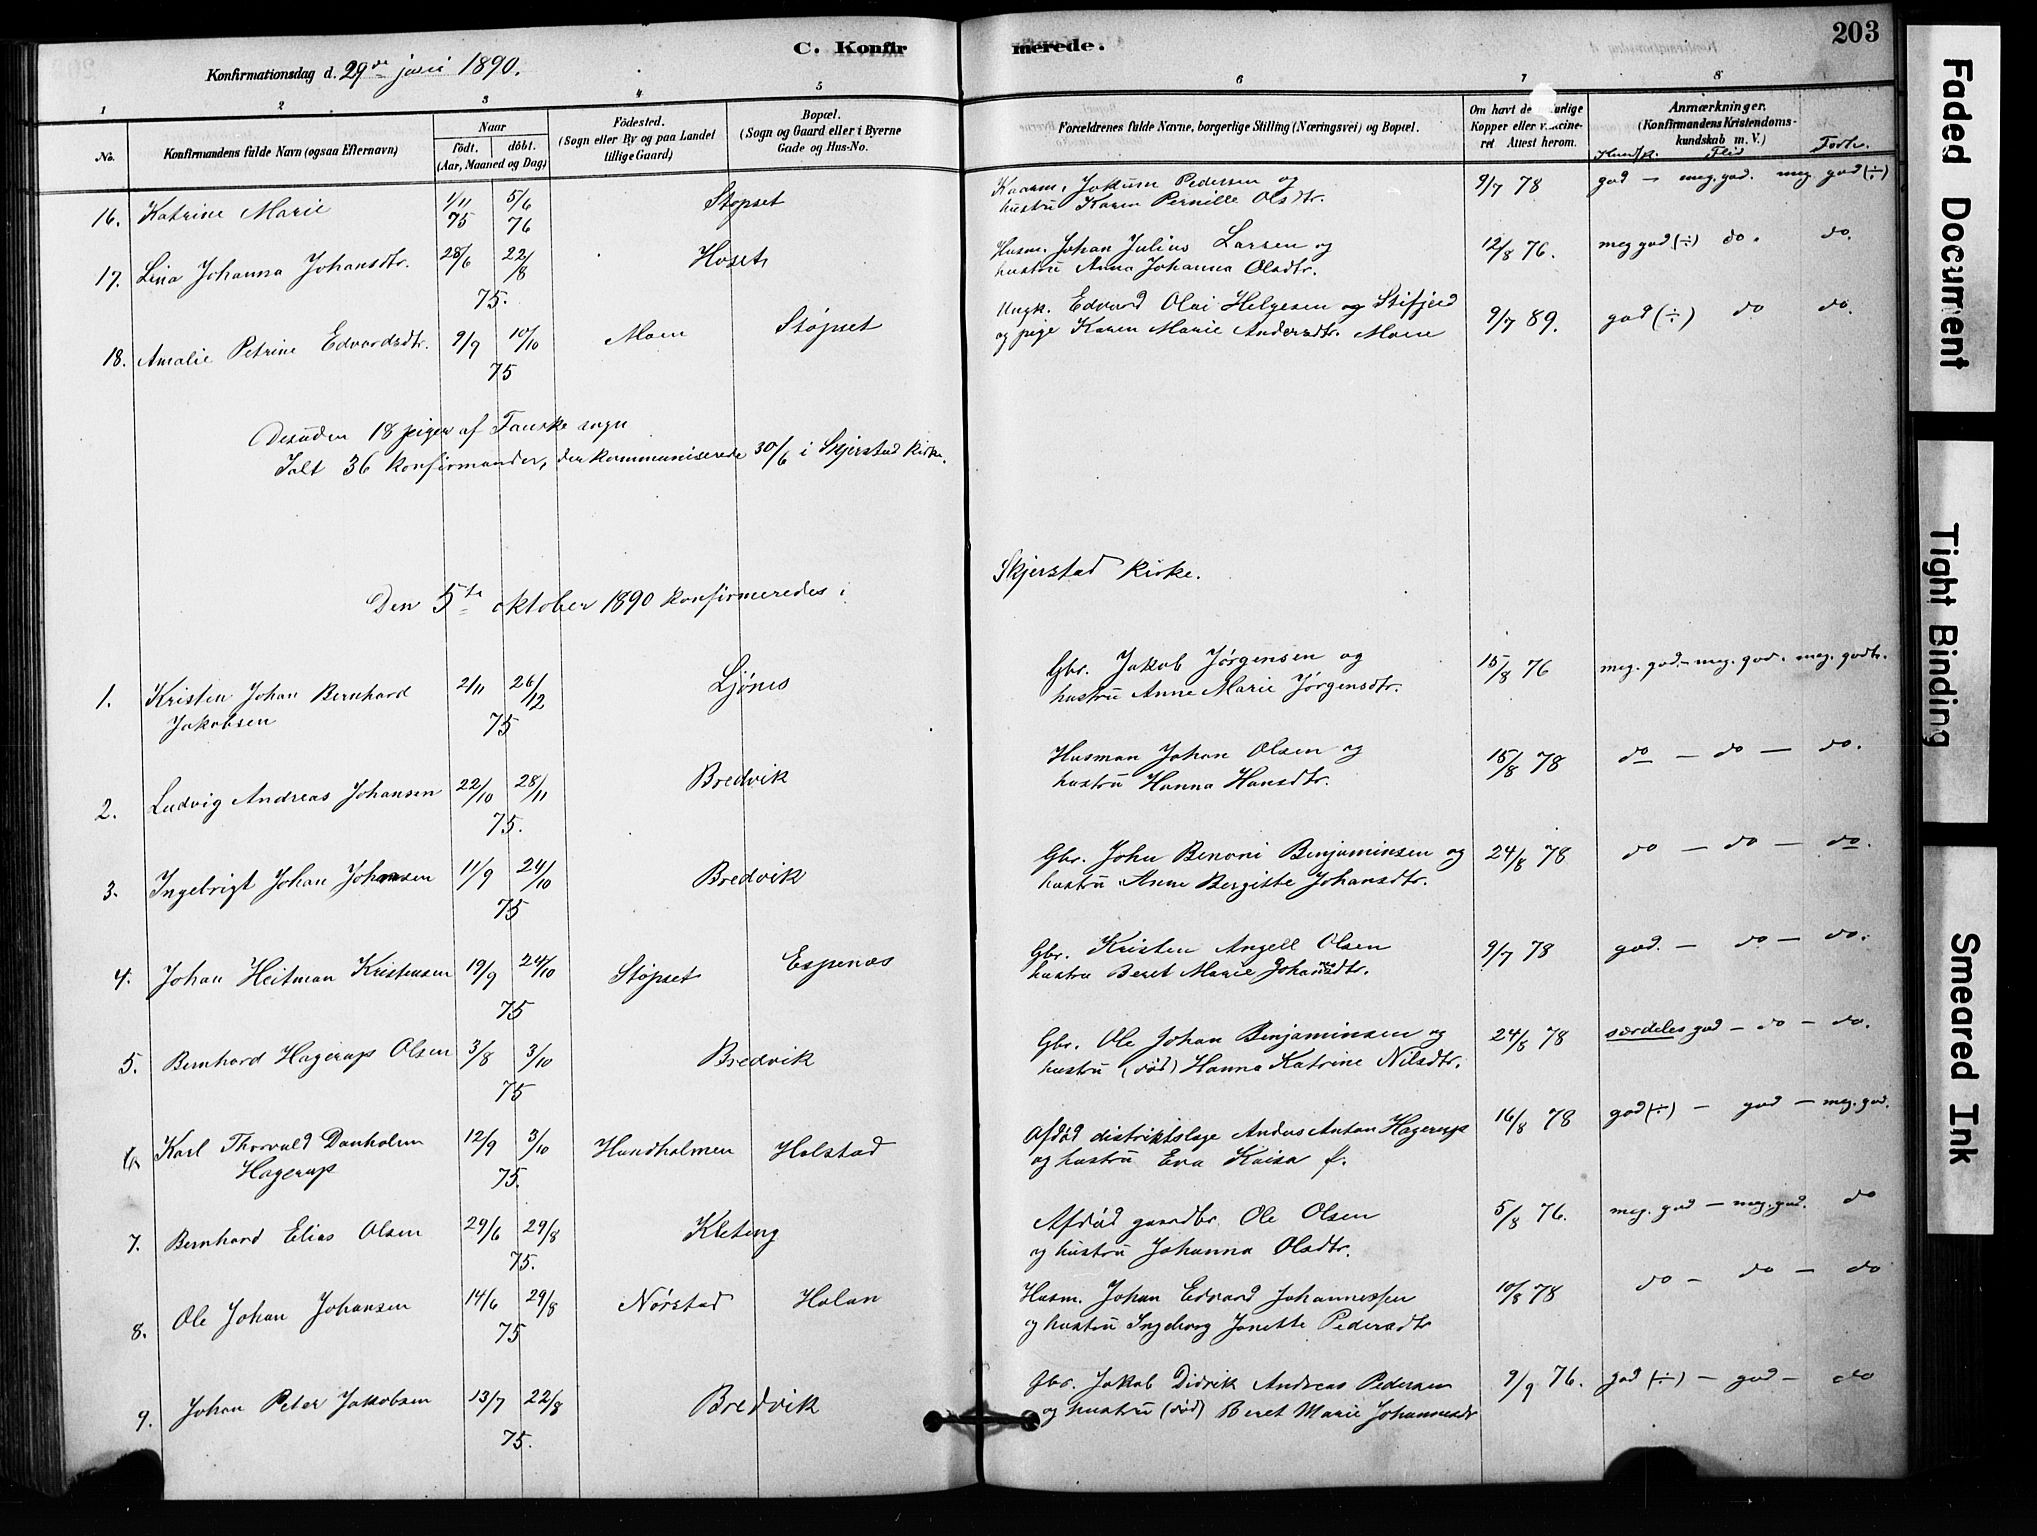 203
C. Konfirmerede.
Konfirmationsdag d. 29de juni 1890.
1 2 3 4 5 6 7 8
No.
Konfirmandens fulde Navn (ogsaa Efternavn)
Naar
födt. döbt.
(Aar, Maaned og Dag)
Födested.
(Sogn eller By og paa Landet
tillige Gaard)
Bopæl.
(Sogn og Gaard eller i Byerne
Gade og Hus-No.
Forældrenes fulde Navne, borgerlige Stilling (Næringsvei) og Bopæl.
Om havt de
Kopper eller
ret Attest herom.
Anmærkninger.
(Konfirmandens Kristendoms-
kundskab m. V.)
Kundsk. Flid
16. Katrine Marie 1/11 75 5/6 76 Støpset Jakum Pedersen og
hustru Karen Pernille Olsdtr. 9/7 78 god – meg. god. meg. god (÷)
17. Lina Johanna Johansdtr. 28/6 22/8 75. Hoset Husm. Johan Julius Larsen og
hustru Anna Johanna Olsdtr. 12/8 76. meg god (÷) do. do.
18. Amalie Petrine Edvardsdtr. 9/9 10/10 75 Moen Støpset Ungk. Edvard Olai Helgesen og Stifjeld
og pige Karen Marie Andersdtr. Moen 9/7 89. god (÷) do do.
Desuden 18 piger af Fauske sogn
Ialt 36 konfirmander, der kommuniserede 30/6 i Skjerstad kirke.
Den 5te oktober 1890 konfirmeredes i Skjerstad kirke.
1. Kristen Johan Bernhard
Jakobsen 2/11 26/12 75 Ljønes Gbr. Jakob Jørgensen og
hustru Anne Marie Jørgensdtr. 15/8 76 meg. god – meg. god. meg. godt.
2. Ludvig Andreas Johansen 22/10 28/11 75. Bredvik Husman Johan Olsen og
hustru Hanna Hansdtr. 15/8 78 do – do – do.
3. Ingebrigt Johan Johnsen 11/9 24/10 75 Bredvik Gbr. John Benoni Benjaminsen og
hustru Anne Bergitte Johansdtr. 24/8 78 do – do – do.
4. Johan Heitman Kristensen 19/9 24/10 75 Støpset Espenæs Gbr. Kristen Angell Olsen
hustru Beret Marie Johannesdtr. 9/7 78 god. – do – do.
5. Bernhard Hagerup Olsen 3/8 3/10 75 Bredvik Gbr. Ole Johan Benjaminsen og
hustru (død) Hanna Katrine Nilsdtr. 24/8 78 særdeles god – do – do.
6. Karl Thorvald Danholm
Hagerup 12/9 3/10 75. Hundholmen Holstad Afdød distriktslæge Anders Anton Hagerup
og hustru Eva Kaisa f. 16/8 78 god (÷) – god – meg. god.
7. Bernhard Elias Olsen 29/6 29/8 75. Kleteng Afdød gaardbr. Ole Olsen
og hustru Johanna Olsdtr. 5/8 76. meg. god – meg. god. do
8. Ole Johan Johansen 14/6 29/8 75 Nørstad Holan Husm. Johan Edvard Johannessen
og hustru Ingeborg Jonette Pedersdtr 10/8 78 do – do – do
9. Johan Peter Jakobsen 13/7 22/8 75. Bredvik Gbr. Jakob Didrik Andreas Pedersen
og hustru (død) Beret Marie Johannesdtr 9/9 76. god (÷) – god – do
Faded Document
Tight Binding
Smeared Ink